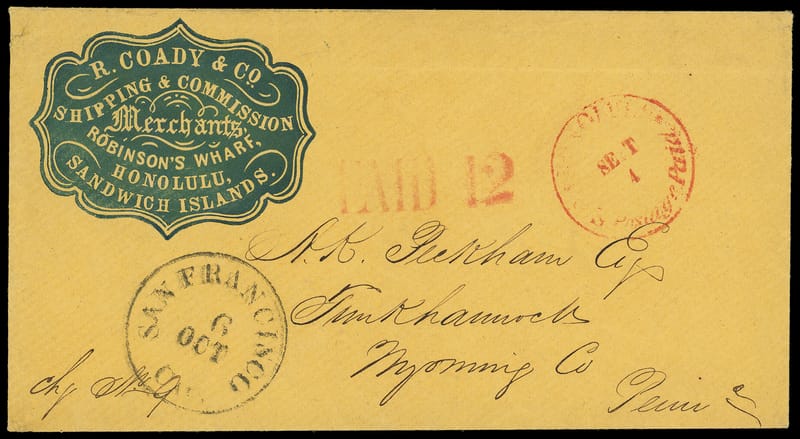 R. COADY & CO.
SHIPPING & COMMISSION
Merchants,
ROBINSON'S WHARF,
HONOLULU,
SANDWICH ISLANDS.
HONOLULU U.S. Postage Paid
SE T
1
PAID 12
A.K. Peckham Esq
Tunkhannock
Wyoming Co
Penn
SAN FRANCISCO
6
OCT
chg No 9